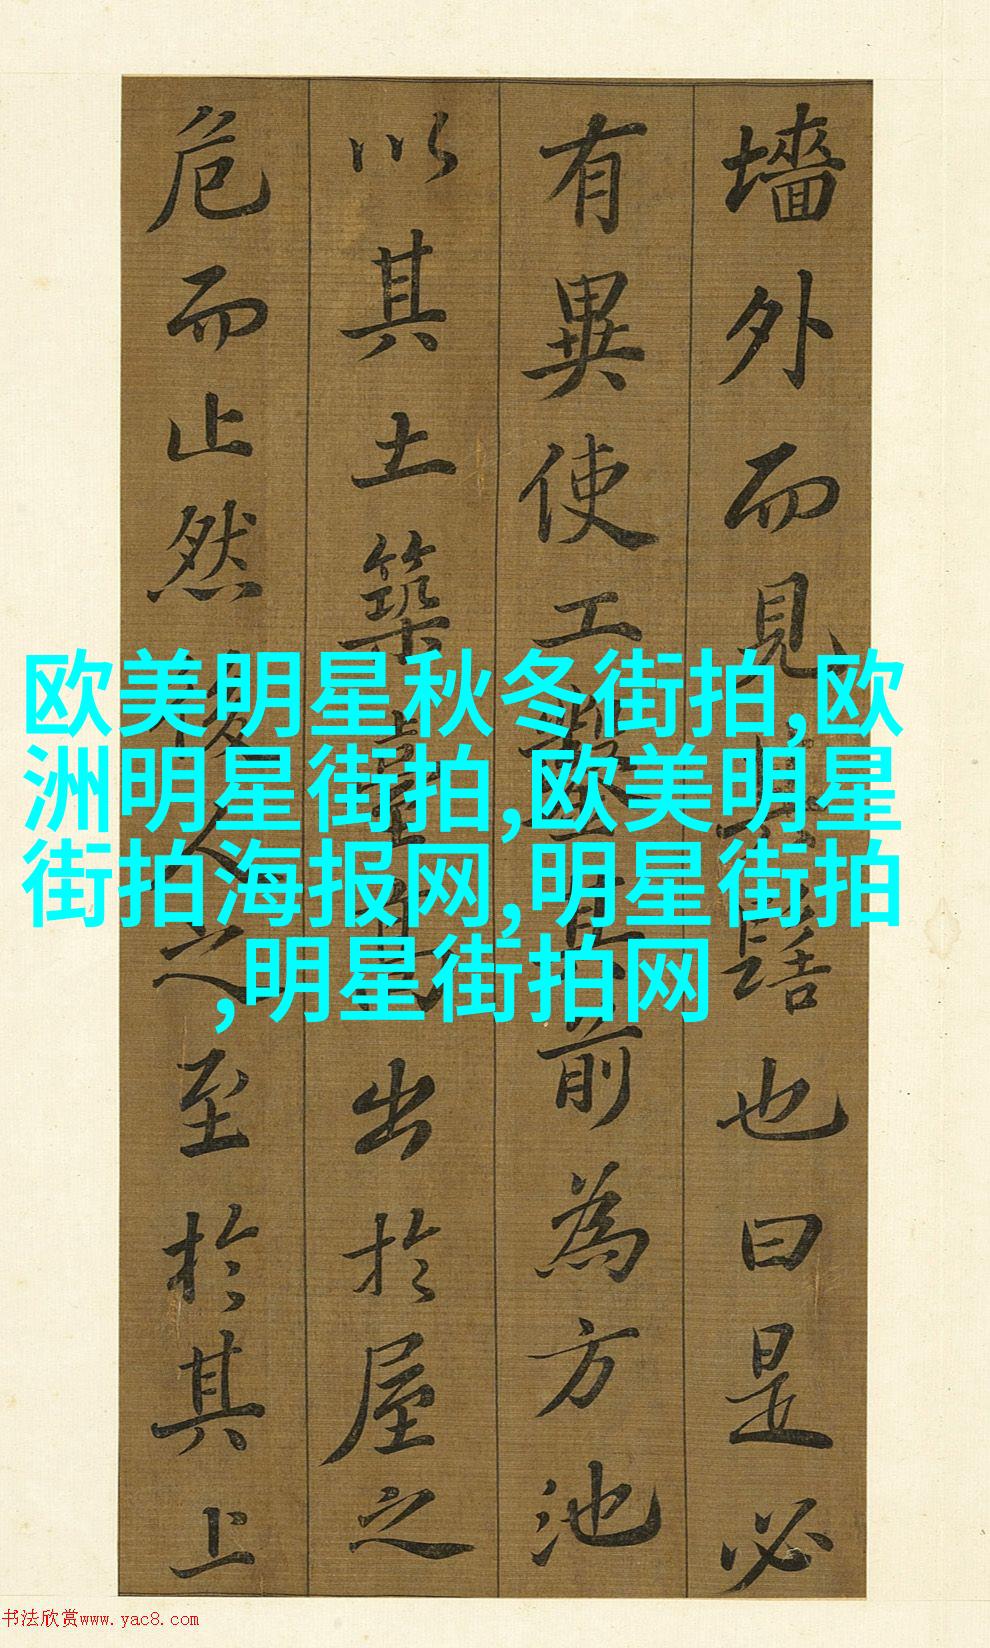 墻外而見其髻也曰是必
有異使工鑿其前為方池
以其土築臺出於屋之
危而止然後人之至於其上
欧美明星秋冬街拍,欧
洲明星街拍,欧美明星
街拍海报网,明星街拍
,明星街拍网
书法欣赏www.yac8.com